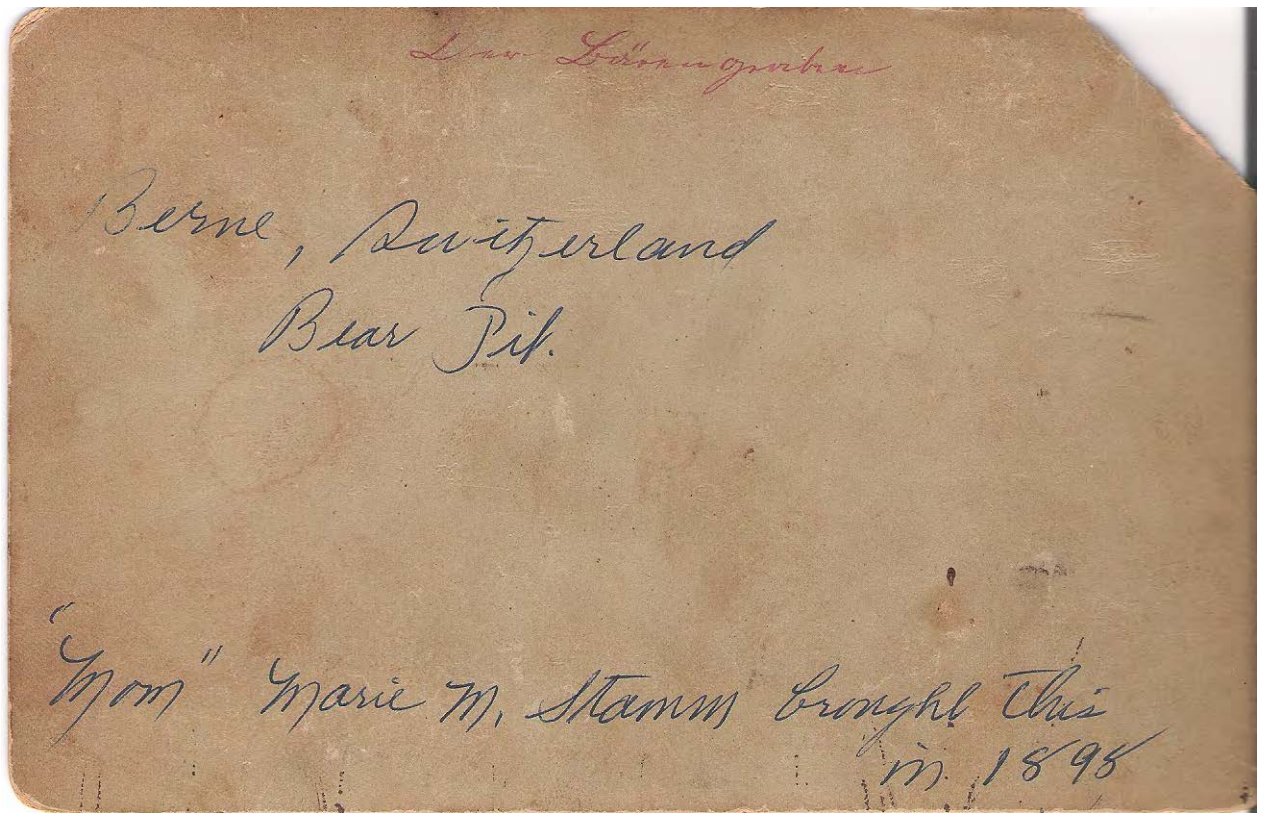 Der Bärengraben
Berne, Switzerland
Bear Pit.
"Mom" Marie M. Stamm brought this
in 1898